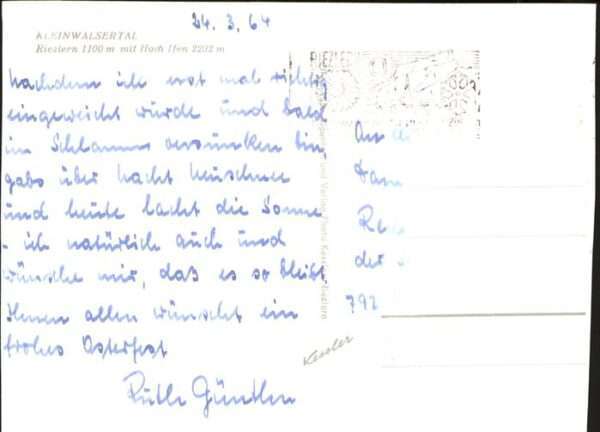 24. 3. 64
KLEINWALSERTAL
Riezlern 1100 m mit Hoch Ifen 2232 m
Nachdem ich erst mal richtig
eingeweicht wurde und bald
im Schlamm versunken bin,
gabs über Nacht Neuschnee
und heute lacht die Sonne
- ich natürlich auch und
wünsche mir, daß es so bleibt.
Ihnen allen wünscht ein
frohes Osterfest
Ruth Günther
RIEZLE
An
Fam
Re
der
792
Kessler